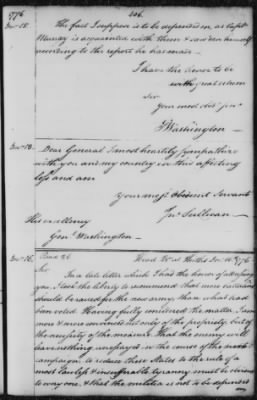 1776
206.
Decr 15.
The fact I suppose is to be depended on as Captn
Murray is acquainted with them & saw him himself
according to the report he has made—
I have the honor to be
with great esteem
Sir
Your most obt Servt
G Washington—
Decr 13.
Dear General I most heartily sympathize
with you and my country in this affecting
loss and am
Your most Obedient Servant
Jno Sullivan—
His excellency
Genl Washington—
Decr 16.
Head Qrs at Keiths Decr 16th 1776
Sir
In a late letter which I had the honor of addressing
you I took the liberty to recommend that more battalions
should be raised for the new army, than what had
been voted. Having fully considered the matter, I am
more & more convinced not only of the propriety but of
the necessity of the measure. That the enemy will
leave nothing unessayed in the course of the next
campaign to reduce these States to the rule of a
most lawless & insufferable tyranny must be obvious
to every one, & that the militia is not to be depended